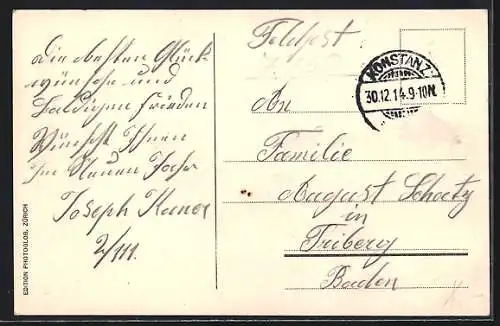 Die besten Glück-
wünsche und
baldigen Frieden
Wünscht Ihnen
im Neuen Jahr
Joseph
2/111.
Feldpost.
KONSTANZ
30.12.14.9-10N.
An
Familie
August Schatz
in
Triberg
Baden
EDITION PHOTOGLOB, ZÜRICH